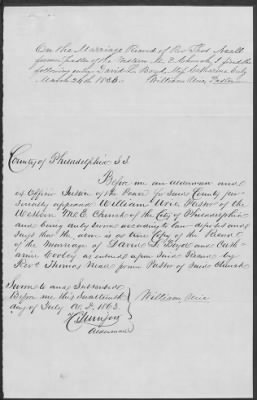 On the Marriage Record of Rev Thos Neall
former pastor of the Western M. E. Church, I find the
following entry David L. Boyd, Miss Catharine Coly
March 24th 1836. William Urie Pastor
County of Philadelphia S.S.
Before me an alderman and
ex officio Justice of the Peace for said County per
sonally appeared William Urie Pastor of the
Western M.E. Church of the City of Philadelphia
and being duly sworn according to law deposes and
says that the above is a true Copy of the Record
of the Marriage of David L. Boyd and Cath
arine Cooley as entered upon said Record by
Rev. Thomas Neall former Pastor of said Church
Sworn to and Subscribed
Before me this
day of July A.D. 1863.
William Urie
Alderman